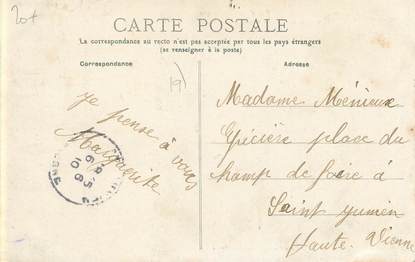 20+
CARTE POSTALE
La correspondance au recto n'est pas acceptée par tous les pays étrangers
(se renseigner à la poste)
Correspondance
Adresse
19)
je pense à vous
Marguerite
Madame Ménieux
Epicière place du
champ de foire à
Saint Junien
Haute-Vienne